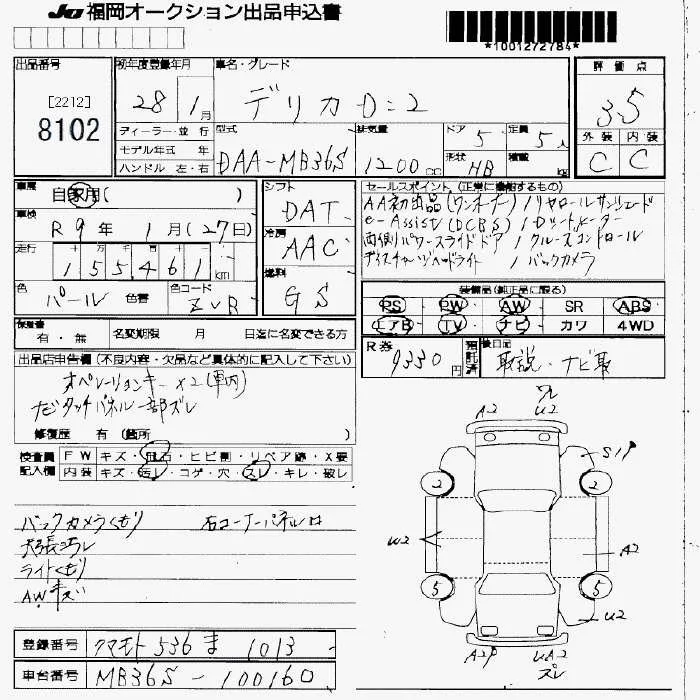 JU 福岡オークション出品申込書
*1001272784*
出品番号
[2212]
8102
初年度登録年月
28年 1月
車名・グレード
デリカD:2
評価点
3.5
外装 内装
C C
ディーラー・並行
モデル年式 年
ハンドル 左・右
型式
DAA-MB36S
排気量
1200cc
ドア
5
形状
HB
定員
5人
積載
kg
車歴
自家用( )
車検
R9年 1月(27日)
走行
155461km
色
パール 色替
色コード
ZVR
シフト
DAT
冷房
AAC
燃料
GS
セールスポイント(正常に機能するもの)
AA初出品(ワンオーナー)/リヤロールサンシェード
e-Assist(DCBS)/
両側パワースライドドア/クルーズコントロール
ディスチャージヘッドライト/バックカメラ
装備品(純正品に限る)
PS・PW・AW・SR・ABS
エアB・TV・ナビ・カワ・4WD
保証書
有・無
名変期限 月 日迄に名変できる方
R券
9330円
預託済
後日品
取説・ナビ取
出品店申告欄(不良内容・欠品など具体的に記入して下さい)
オペレーションキーx2(車内)
ナビタッチパネル一部ズレ
修復歴 有(箇所 )
検査員記入欄
FW キズ・飛石・ヒビ割・リペア跡・X要
内装 キズ・汚レ・コゲ・穴・スレ・キレ・破レ
バックカメラくもり
ライトくもり
AWキズ
A2 U2
S1P
2 2
W2
A2
5 5
U2
A2P UA2
ズレ
登録番号
クマモト 536 ま 1013
車台番号
MB36S-100160